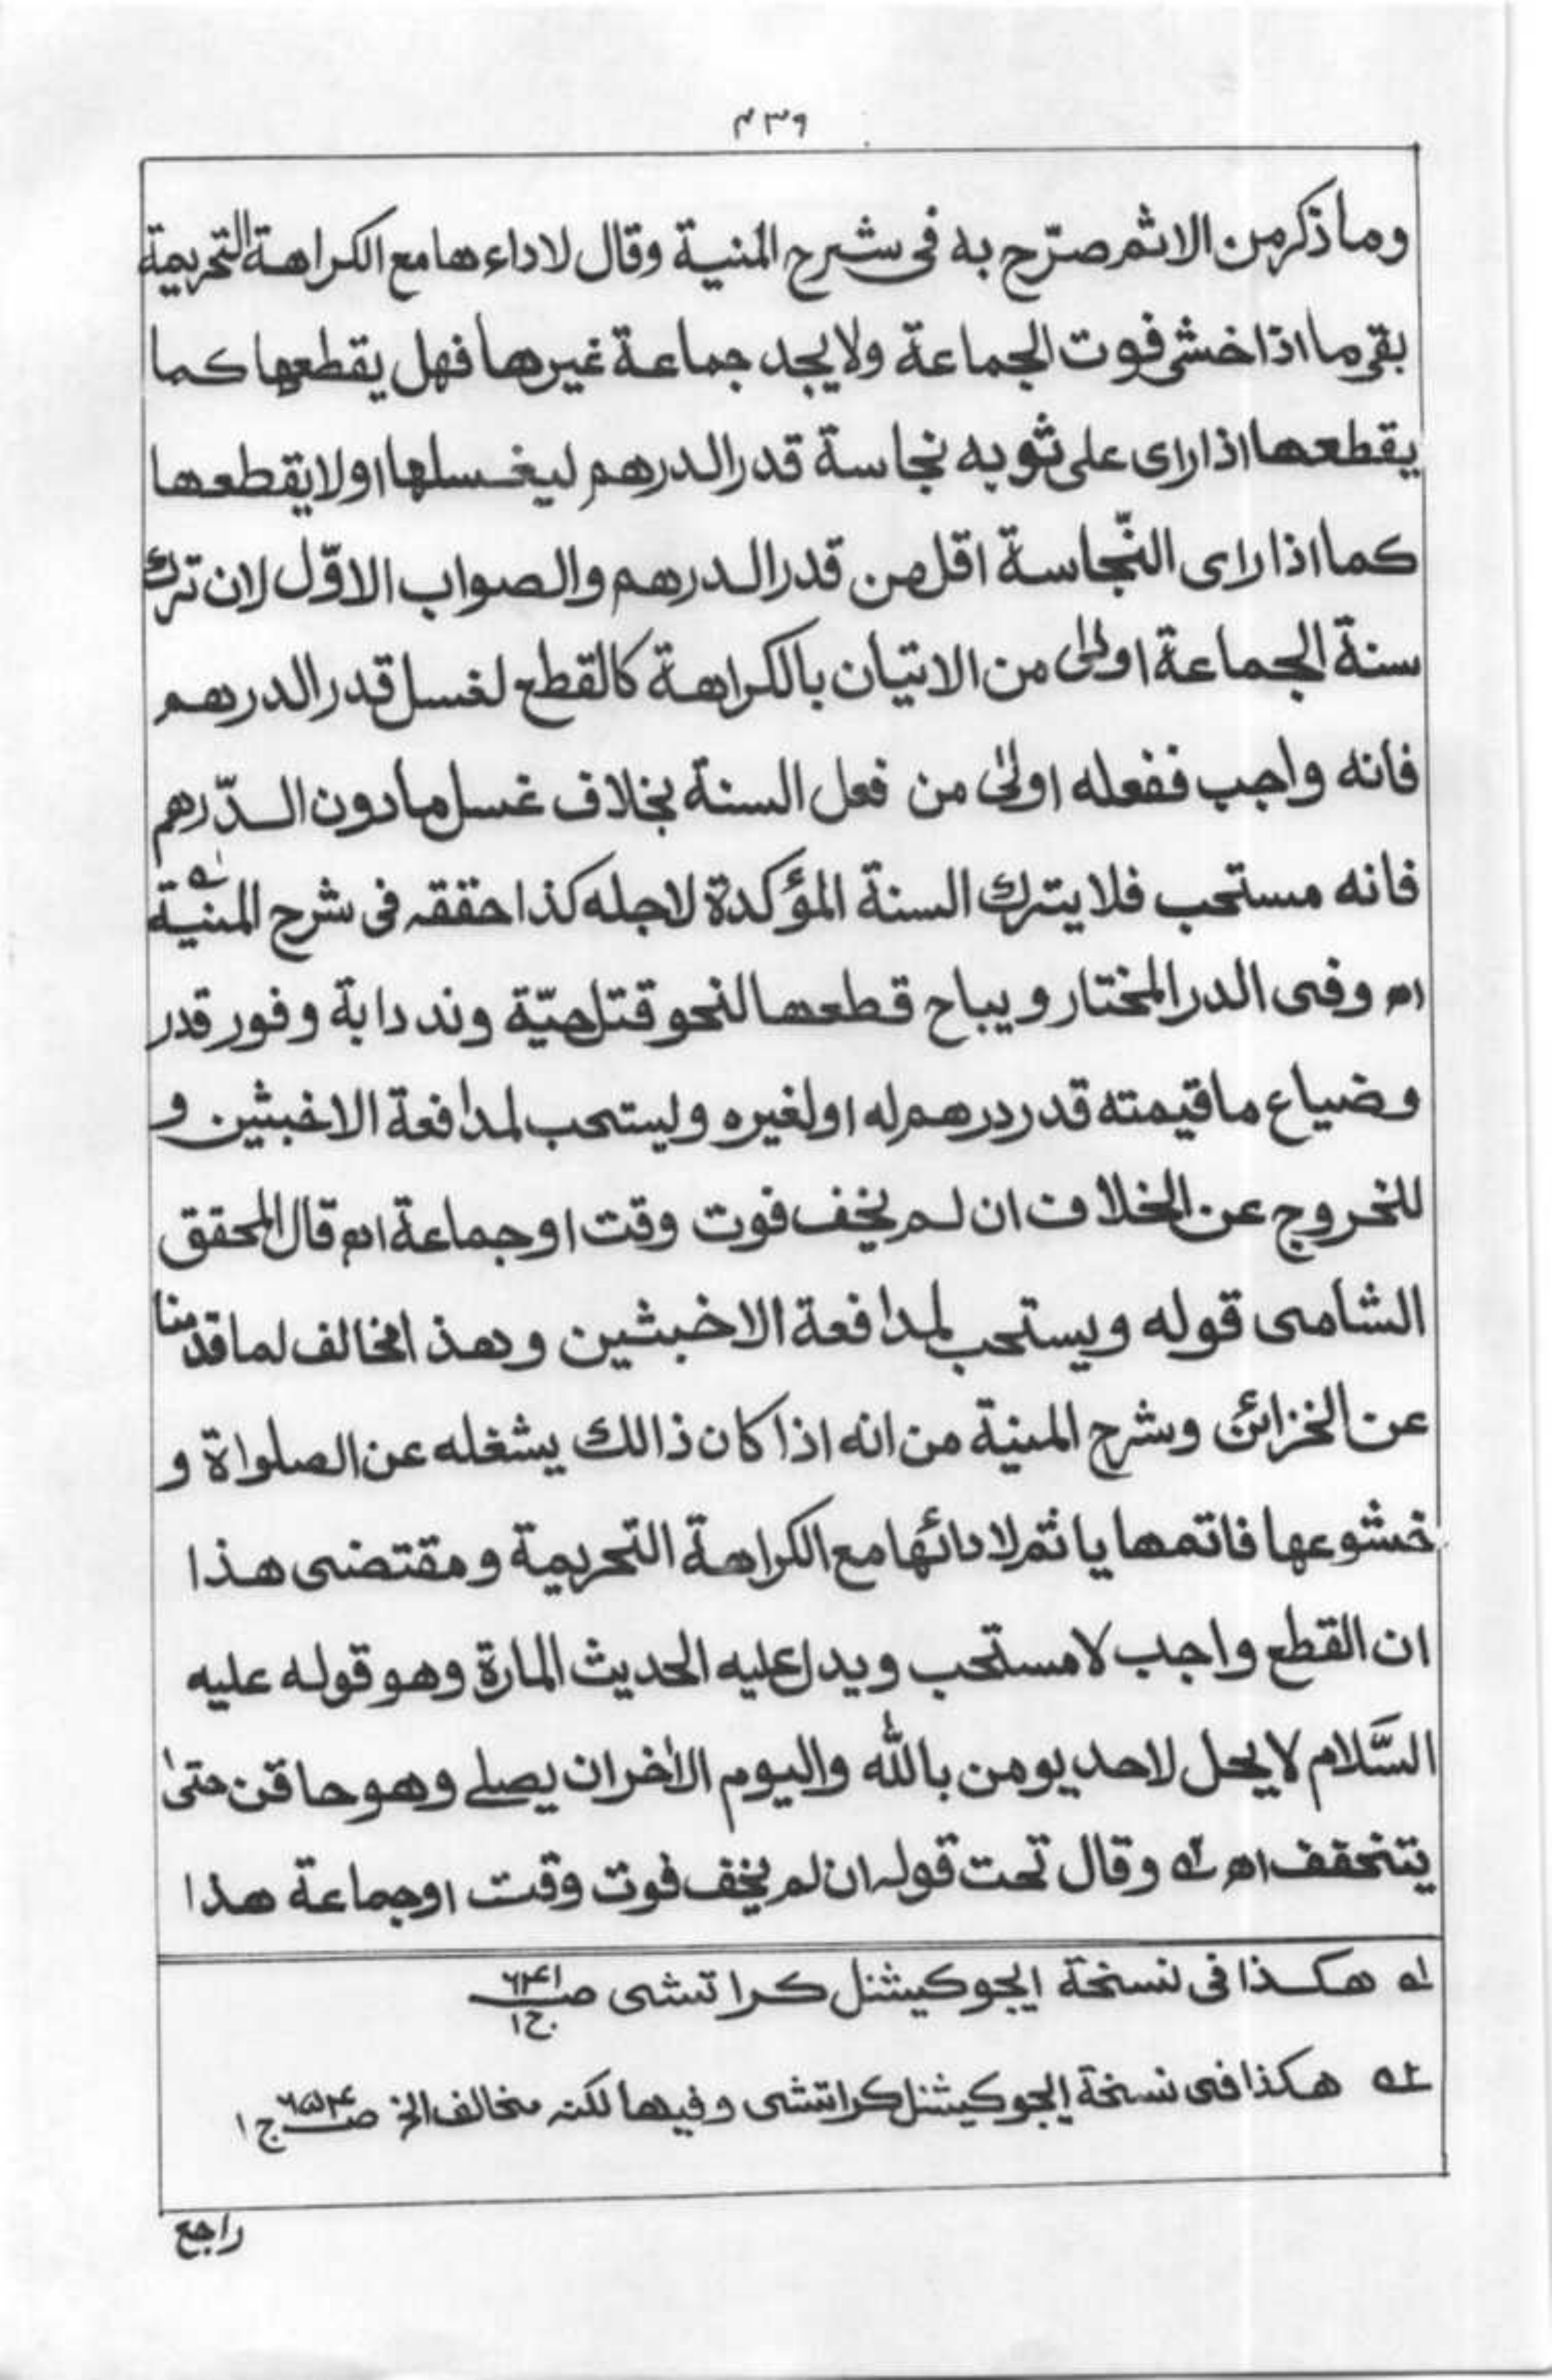 ۴۳۹
وما ذكر من الاثم صرّح به فى شرح المنية وقال لاداءها مع الكراهة التحريمة
بقى ما اذا خشى فوت الجماعة ولا يجد جماعة غيرها فهل يقطعها كما
يقطعها اذا راى على ثوبه نجاسة قدر الدرهم ليغسلها او لا يقطعها
كما اذا راى النّجاسة اقل من قدر الدرهم والصواب الاوّل لان ترك
سنة الجماعة اولىٰ من الاتيان بالكراهة كالقطع لغسل قدر الدرهم
فانه واجب ففعله اولىٰ من فعل السنة بخلاف غسل مادون الدّرهم
فانه مستحب فلا يترك السنة المؤكدة لاجله كذا حققه فى شرح المنية ؎۱
اھ وفى الدر المختار ويباح قطعها لنحو قتل حيّة وند دابة وفور قدر
وضياع ما قيمته قدر درهم له او لغيره وليستحب لمدافعة الاخبثين و
للخروج عن الخلاف ان لم يخف فوت وقت او جماعة اھ قال المحقق
الشامى قوله ويستحب لمدافعة الاخبثين وهذا مخالف لما قدمنا
عن الخزائن وشرح المنية من انه اذا كان ذالك يشغله عن الصلواة و
خشوعها فاتمها ياثم لادائها مع الكراهة التحريمة ومقتضى هذا
ان القطع واجب لا مستحب ويدل عليه الحديث المارة وهو قوله عليه
السَّلام لا يحل لاحد يومن بالله واليوم الاٰخر ان يصلے وهو حاقن حتىٰ
يتخفف اھ ؎۲ وقال تحت قوله ان لم يخف فوت وقت او جماعة هذا
؎۱ هكذا فى نسخة ايجوكيشنل كراتشى صـ ۶۴۱ ج۱
؎۲ هكذا فى نسخة ايجوكيشنل كراتشى وفيها لكنه مخالف الخ صـ ۶۵۴ ج۱
راجع